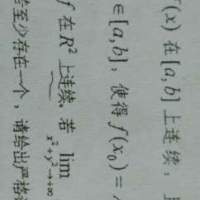 (x) 在 [a,b] 上连续,
∈ [a,b], 使得 f(x₀) =
f 在 R² 上连续. 若 lim
x²+y²→+∞
至少存在一个, 请给出严格